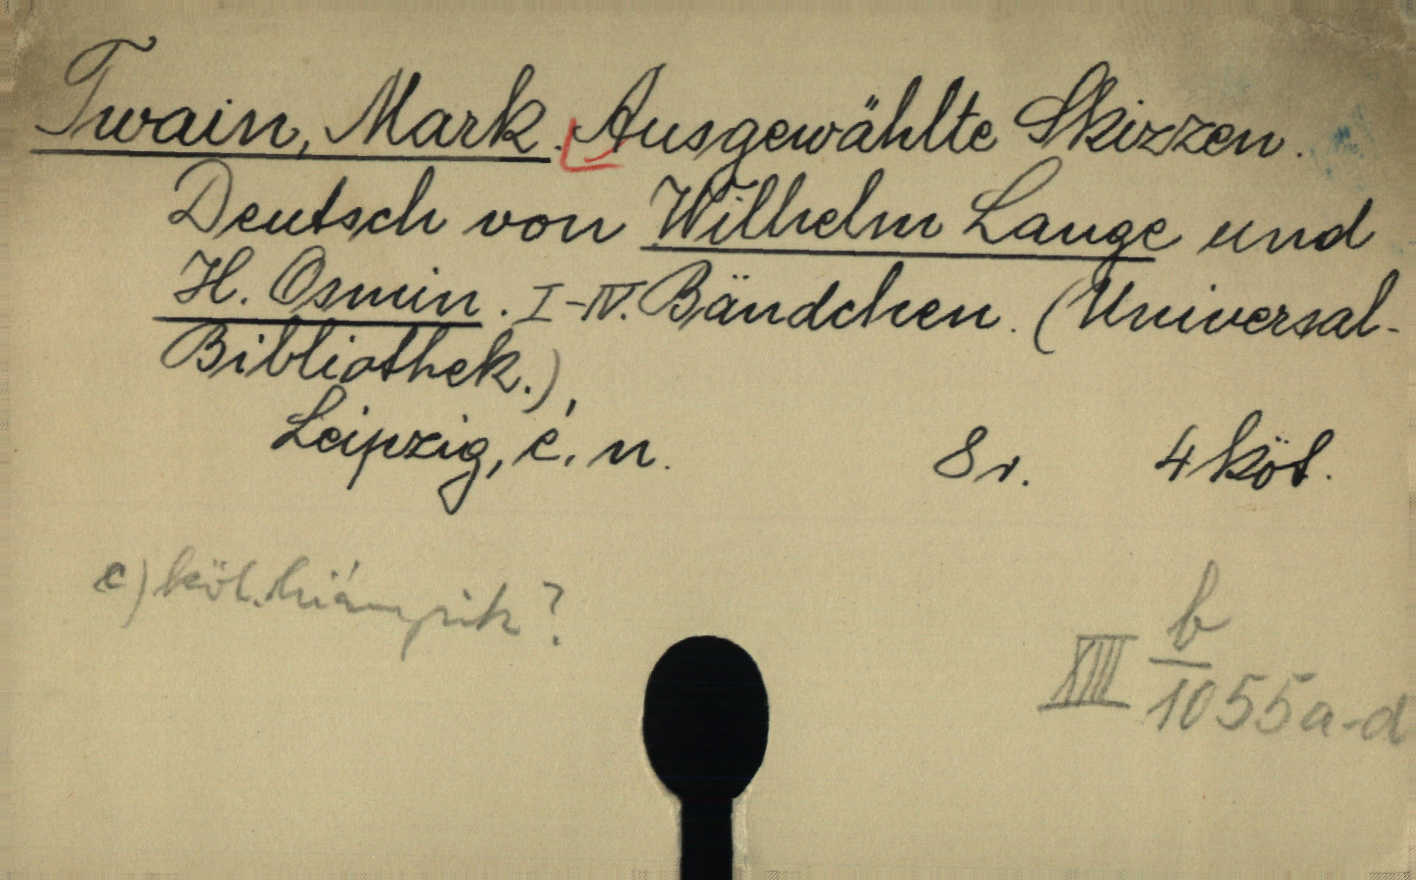 Twain, Mark. Ausgewählte Skizzen.
Deutsch von Wilhelm Lange und
H. Osmin. I-IV. Bändchen. (Universal-
Bibliothek.),
Leipzig, é. n. 8r. 4 köt.
c) köt. hiányzik?
XIII b/1055a-d